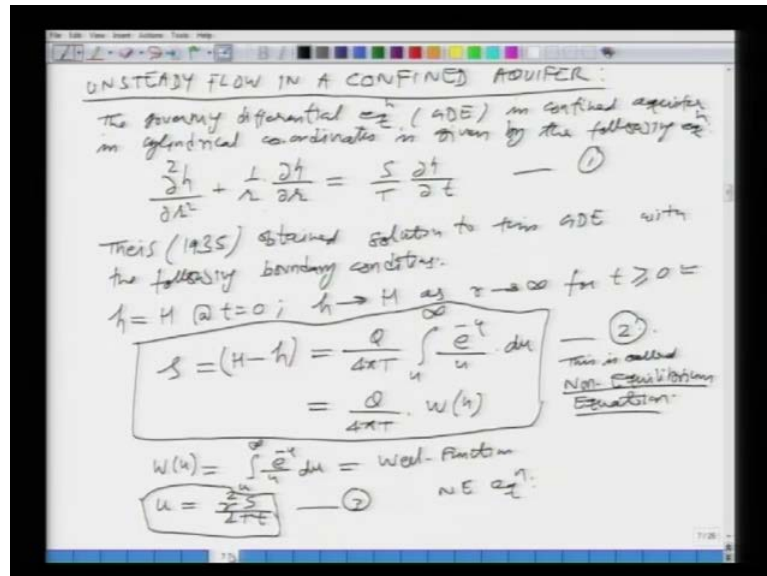 File Edit View Insert Actions Tools Help
UNSTEADY FLOW IN A CONFINED AQUIFER:
The governing differential eqⁿ (GDE) in confined aquifer
in cylindrical co-ordinates is given by the following eqⁿ:
∂²h/∂r² + 1/r ∂h/∂r = S/T ∂h/∂t — ①
Theis (1935) obtained solution to this GDE with
the following boundary conditions.
h = H @ t=0; h → H as r → ∞ for t ≥ 0 =
s = (H-h) = Q/4πT ∫ᵤ^∞ e⁻ᵘ/u . du — ②.
This is called
Non-Equilibrium
Equation.
= Q/4πT . W(u)
W(u) = ∫ᵤ^∞ e⁻ᵘ/u du = Well-Function
NE eqⁿ:
u = r²S/2Tt — ②
7/25